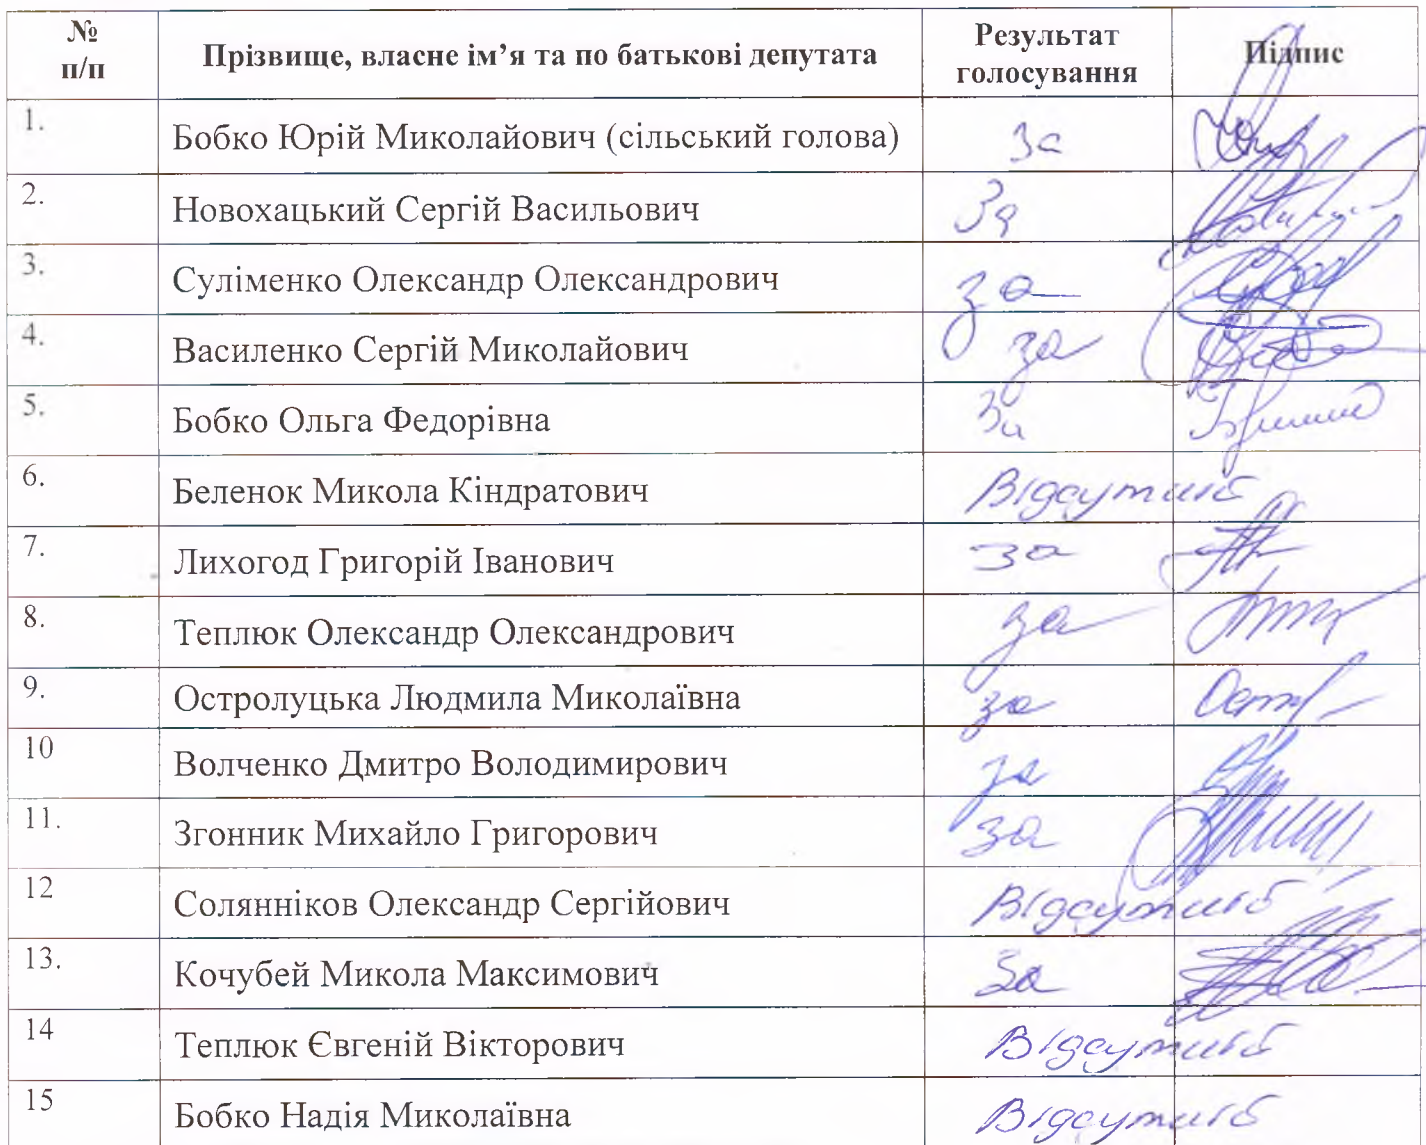 № п/п Прізвище, власне ім’я та по батькові депутата Результат голосування Підпис
1. Бобко Юрій Миколайович (сільський голова) За
2. Новохацький Сергій Васильович За
3. Суліменко Олександр Олександрович за
4. Василенко Сергій Миколайович за
5. Бобко Ольга Федорівна За
6. Беленок Микола Кіндратович Відсутній
7. Лихогод Григорій Іванович за
8. Теплюк Олександр Олександрович за
9. Остролуцька Людмила Миколаївна за
10 Волченко Дмитро Володимирович за
11. Згонник Михайло Григорович за
12 Солянніков Олександр Сергійович Відсутній
13. Кочубей Микола Максимович За
14 Теплюк Євгеній Вікторович Відсутній
15 Бобко Надія Миколаївна Відсутній